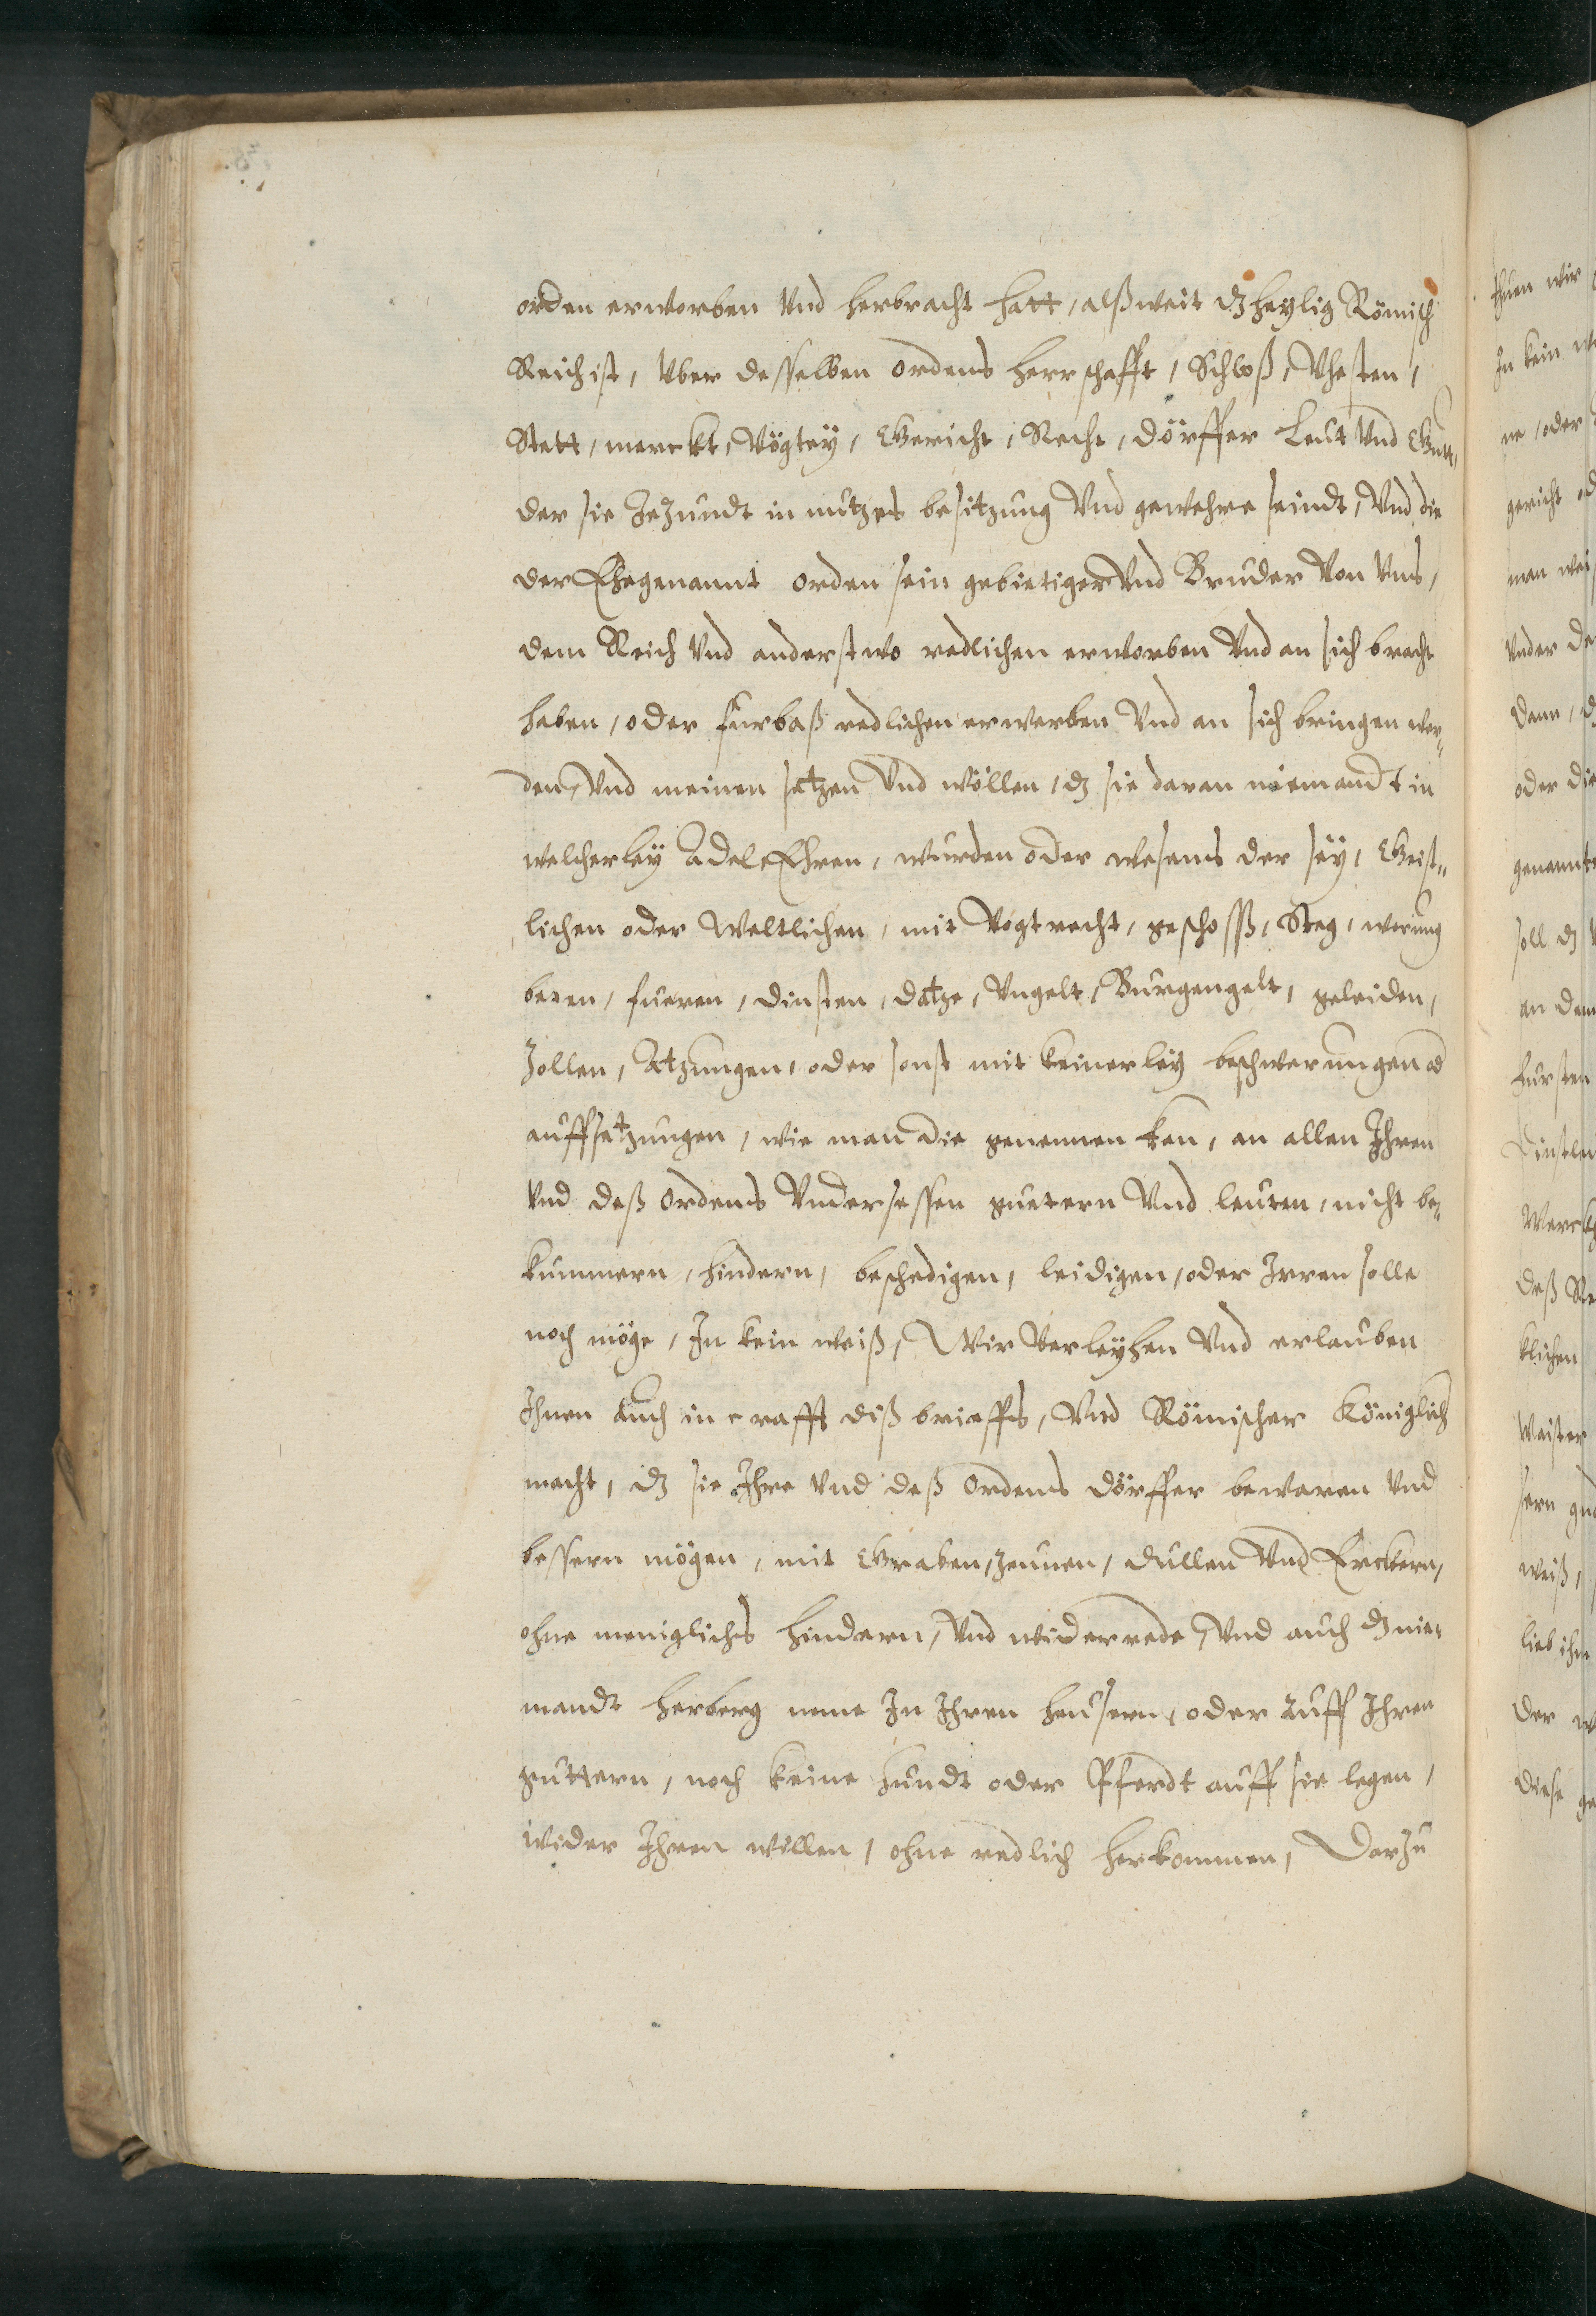 orden erworben Vnd herbracht hatt, alß weit dz heylig Römisch
Reich ist, Vber desselben ordens herrschafft, Schloß, Vhesten,
Stett, merckt, Vögteÿ, Gericht, Recht, dörffer Leut Vnd Gutt,
der sie Jezundt in nutzes besitzung Vnd gewehre seindt, Vnd die
der Ehegenannt orden sein gebietiger Vnd Bruder Von Vns,
dem Reich Vnd anderstwo redlichen erworben Vnd an sich bracht
haben, oder furbaß redlichen erwerben Vnd an sich bringen wer„
den, Vnd meinen setzen Vnd wöllen, dz sie daran niemandt in
welcherleÿ Adel Ehren, wurden oder wesens der seÿ, Geist„
lichen oder Weltlichen, mit Vogtrecht, geschoss, Steg, werung
beren, fueren, dinsten, datze, Vngelt, Burgengelt, geleiden,
Zollen, Atzungen, oder sonst mit keinerleÿ beschwerungen od
auffsetzungen, wie man die genennen kan, an allen Ihren
Vnd deß ordens Vndersessen guetern Vnd leuten, nicht be„
kummern, hindern, beschedigen, leidigen, oder Irren solle
noch möge, In kein weiß, Wir Verleÿhen Vnd erlauben
Ihnen Auch in crafft diß brieffs, Vnd Römischer Königlich
macht, dz sie Ihre Vnd deß ordens dörffer bewaren Vnd
bessern mögen, mit Graben, zeunen, dullen Vnd Erckern,
ohne meniglichs hindern, Vnd widerrede, Vnd auch dz nie„
mandt herberg neme In Ihren heusern, oder Auff Ihren
guttern, noch keine hundt oder Pferdt auff sie legen,
wider Ihren willen, ohne redlich herkommen, Darzu
thuen wir
In kein
ne, oder
gericht
man
Vnder
dann,
oder die
genannt
soll dz
an dem
fursten
dinstle
Werck
deß
klichen
Maister
sern
weiß,
lieb
der
diese